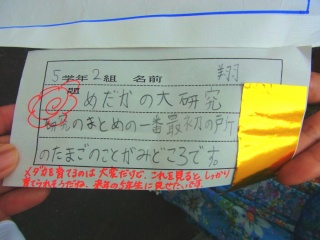 5学年2組 名前 翔
題 めだかの大研究
研究のまとめの一番最初の所
のたまごのことがみどころです。
メダカを育てるのは大変だけど、これを見るとしっかり
育てられそうだね。来年の5年生に見せたいです。